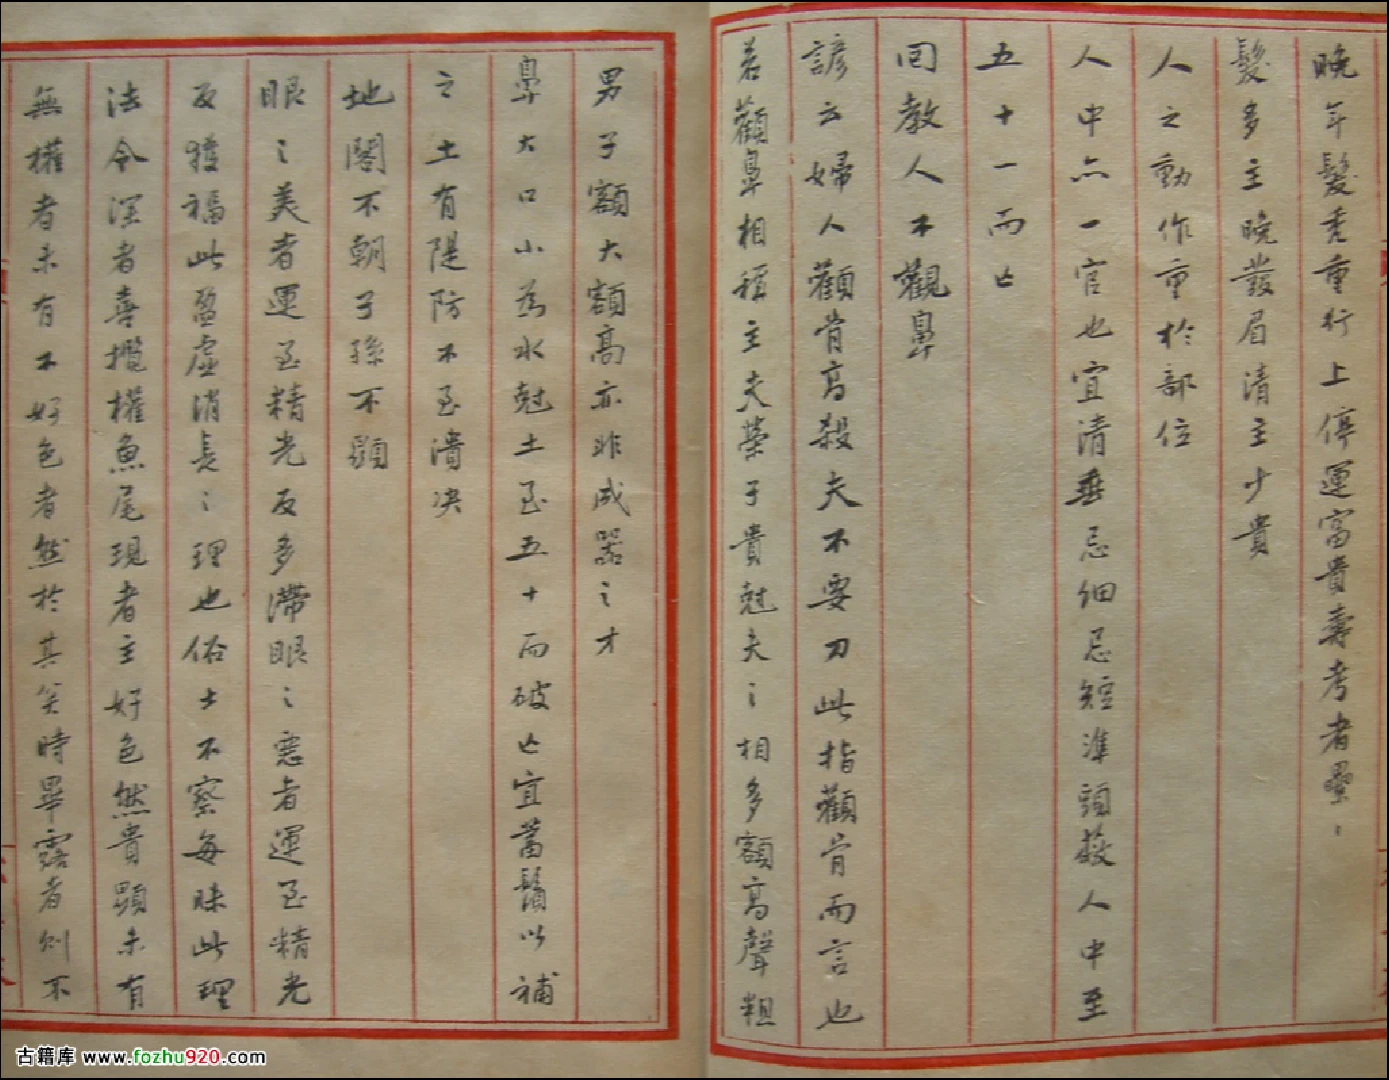 晚年髮秃重行上停運富貴壽考者纍々
髮多主晚發眉清主少貴
人之動作重於部位
人中亦一官也宜清垂忌細忌短準頭蔽人中至
五十一而亡
回教人不觀鼻
諺云婦人顴骨高殺夫不要刀此指顴骨而言也
若顴鼻相稱主夫榮子貴尅夫之相多額高聲粗
男子額大額高亦非成器之才
鼻大口小為水尅土至五十而破亡宜蓄鬚以補
之土有隄防不至潰决
地閣不朝子孫不顯
眼之美者運至精光反多滯眼之惡者運至精光
反獲福此盈虚消長之理也俗士不察每昧此理
法令深者喜攬權魚尾現者主好色然貴顯未有
無權者未有不好色者然於其笑時畢露者則不
古籍库 www.fozhu920.com